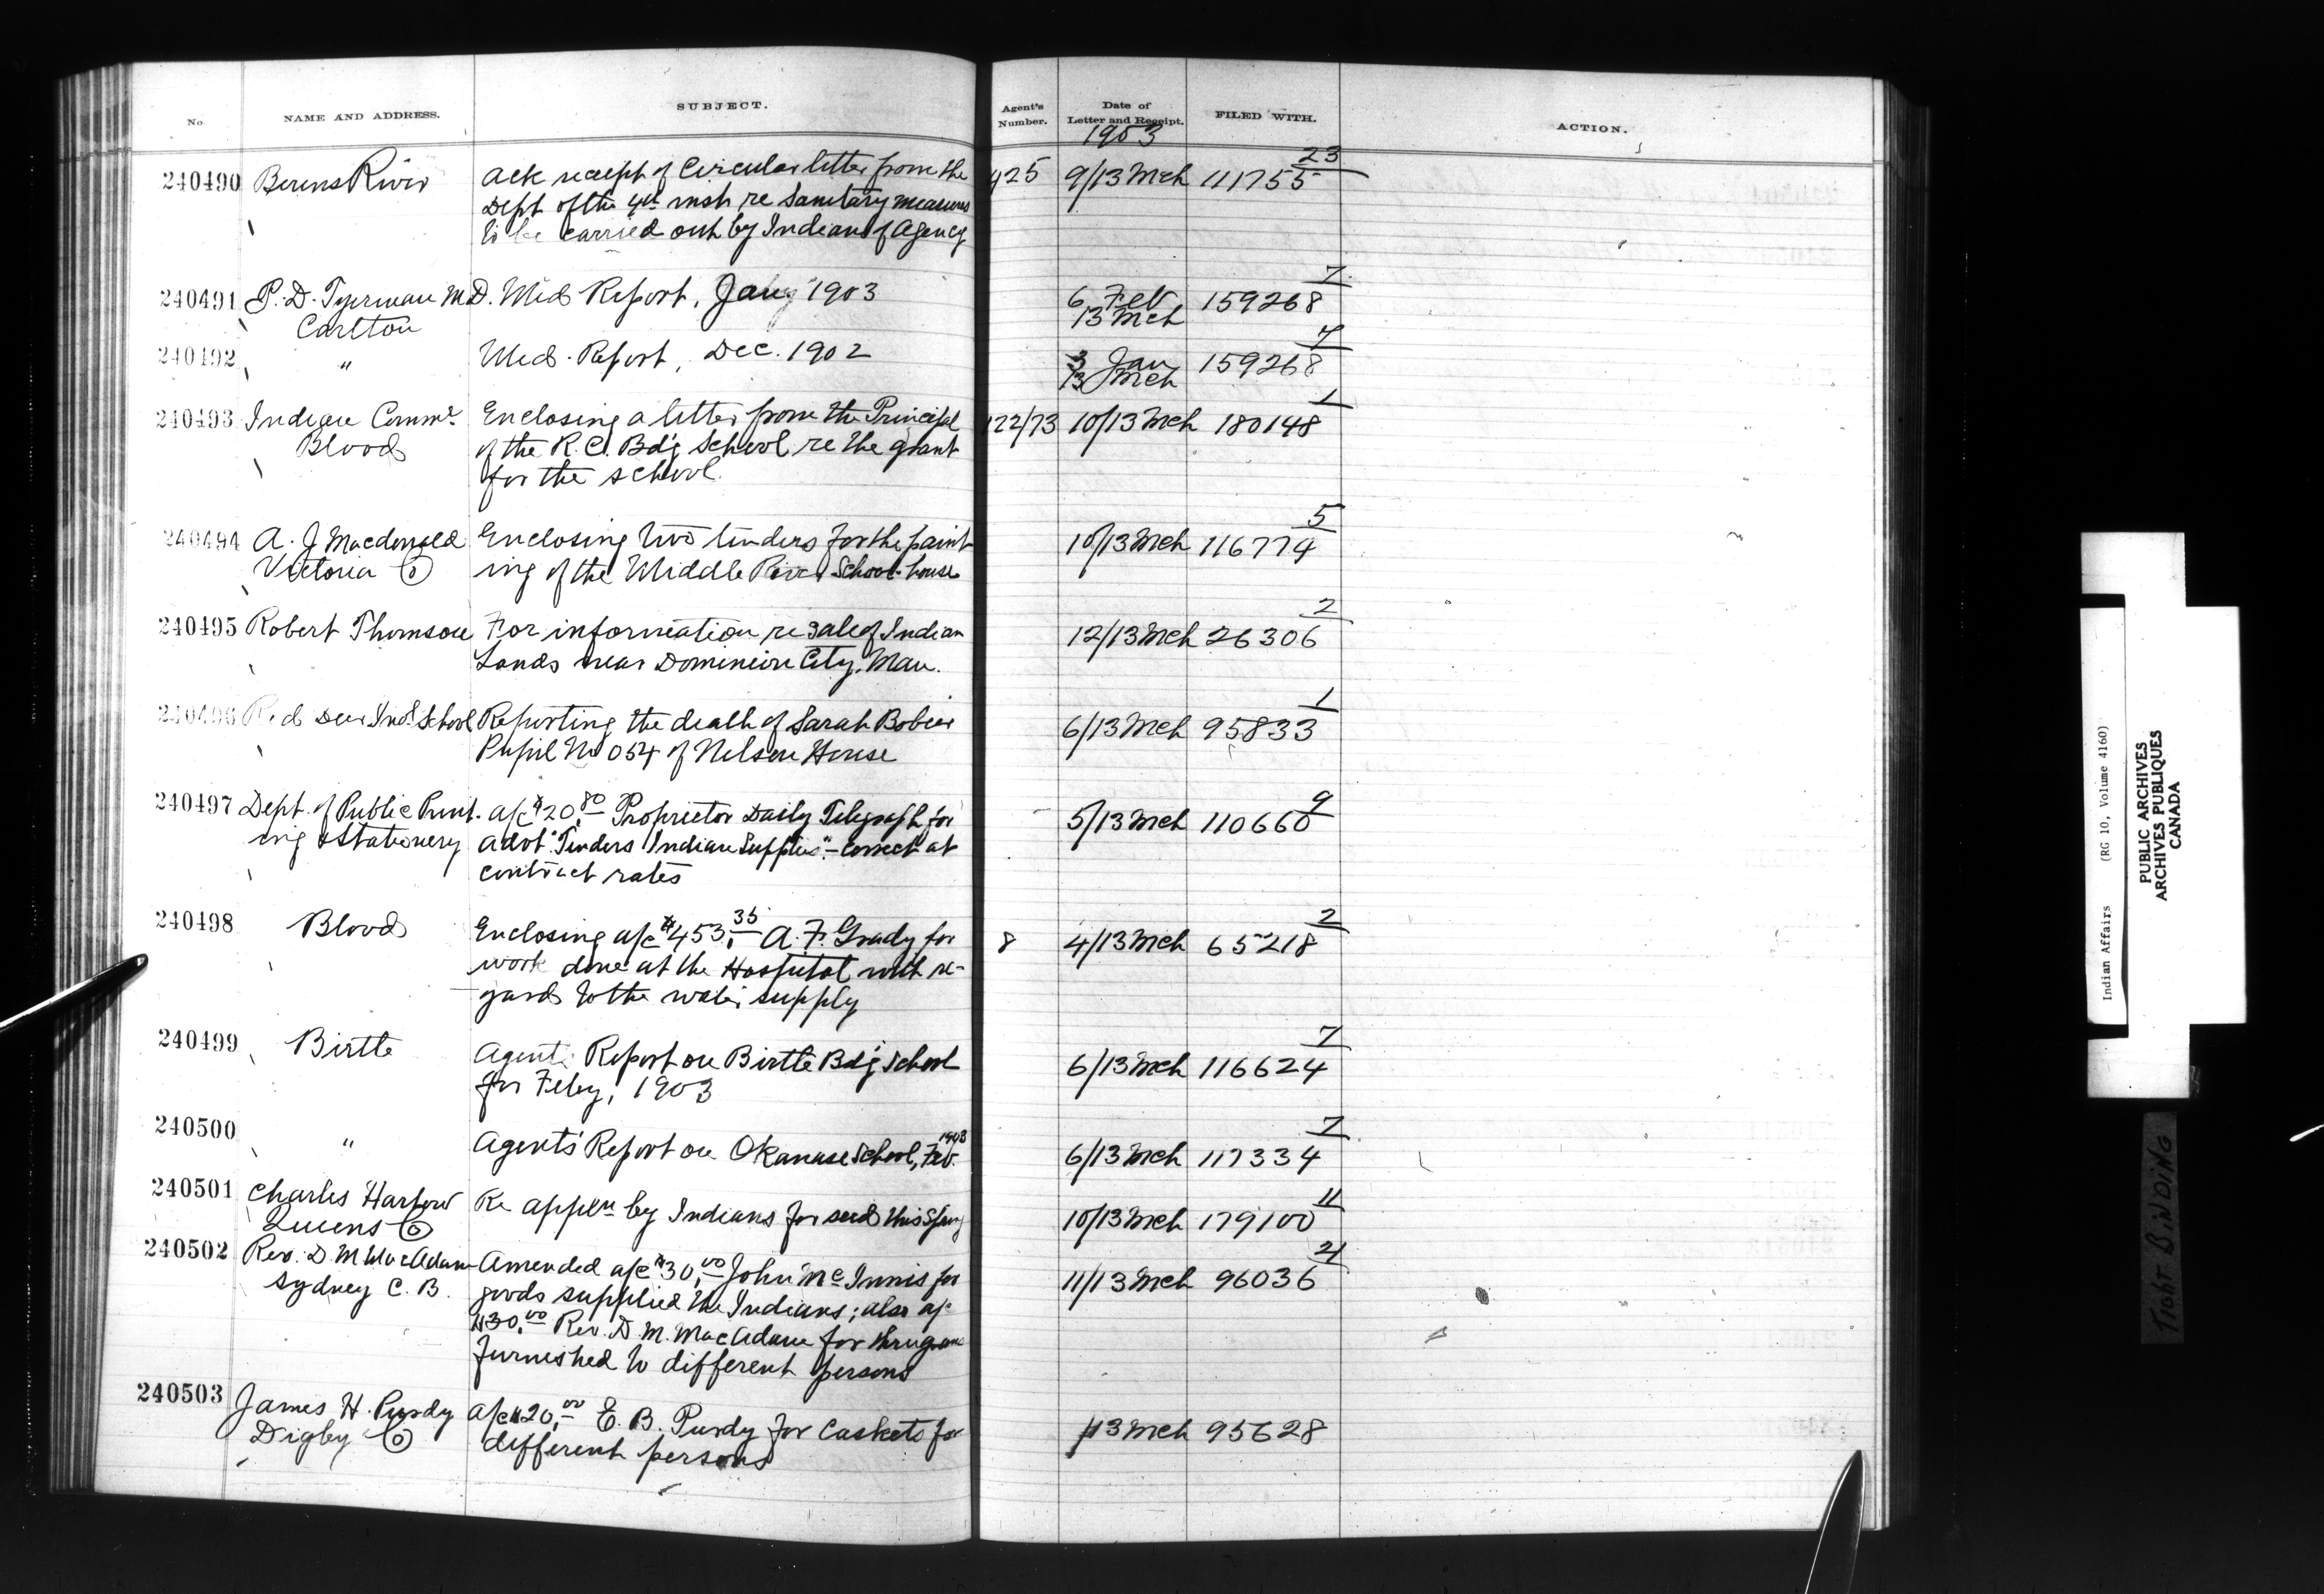 No.
NAME AND ADDRESS.
SUBJECT.
Agent's Number.
Date of Letter and Receipt.
FILED WITH.
ACTION.
1903
240490 Berens River Ack receipt of Circular letter from the 425 9/13 Mch 111755 23
Dept of the 4th inst re Sanitary measures
to be carried out by Indians of Agency
240491 P. D. Tyerman M.D. Med Report, Jany 1903 6 Feb 159268 7
Carlton 13 Mch
240492 " Med. Report, Dec. 1902 3 Jan 159268 7
13 Mch
240493 Indian Commr Enclosing a letter from the Principal 122/73 10/13 Mch 180148 1
Blood of the R.C. Bd'g School re the grant
for the school.
240494 A. J Macdonald Enclosing two tenders for the paint- 10/13 Mch 116774 5
Victoria Co ing of the Middle River School-house
240495 Robert Thomson For information re sale of Indian 12/13 Mch 26306 2
Lands near Dominion City, Man.
240496 Red Deer Ind. School Reporting the death of Sarah 6/13 Mch 95833 1
Pupil No 054 of Nelson House
240497 Dept. of Public Print- a/c $20.80 Proprietor Daily Telegraph for 5/13 Mch 110660 9
ing & Stationery advt "Tenders Indian Supplies" - correct at
contract rates
240498 Blood Enclosing a/c $453.35 A. F. Grady for 8 4/13 Mch 65218 2
work done at the Hospital with re-
gards to the water supply
240499 Birtle Agent's Report on Birtle Bd'g School 6/13 Mch 116624 7
for Feby, 1903
240500 " Agent's Report on Okanase School, Feb. 1903 6/13 Mch 117334 7
240501 Charles Harlow Re appln by Indians for seed this Spring 10/13 Mch 179100 11
Queens Co
240502 Rev. D. M MacAdam Amended a/c $30.00 John McInnis for 11/13 Mch 96036 21
Sydney C. B. goods supplied the Indians; also a/c
$30.00 Rev. D. M. MacAdam for
furnished to different persons
240503 James H. Purdy a/c $20.00 E. B. Purdy for Caskets for 13 Mch 95628
Digby Co different persons
Indian Affairs (RG 10, Volume 4160)
PUBLIC ARCHIVES
ARCHIVES PUBLIQUES
CANADA
TIGHT BINDING